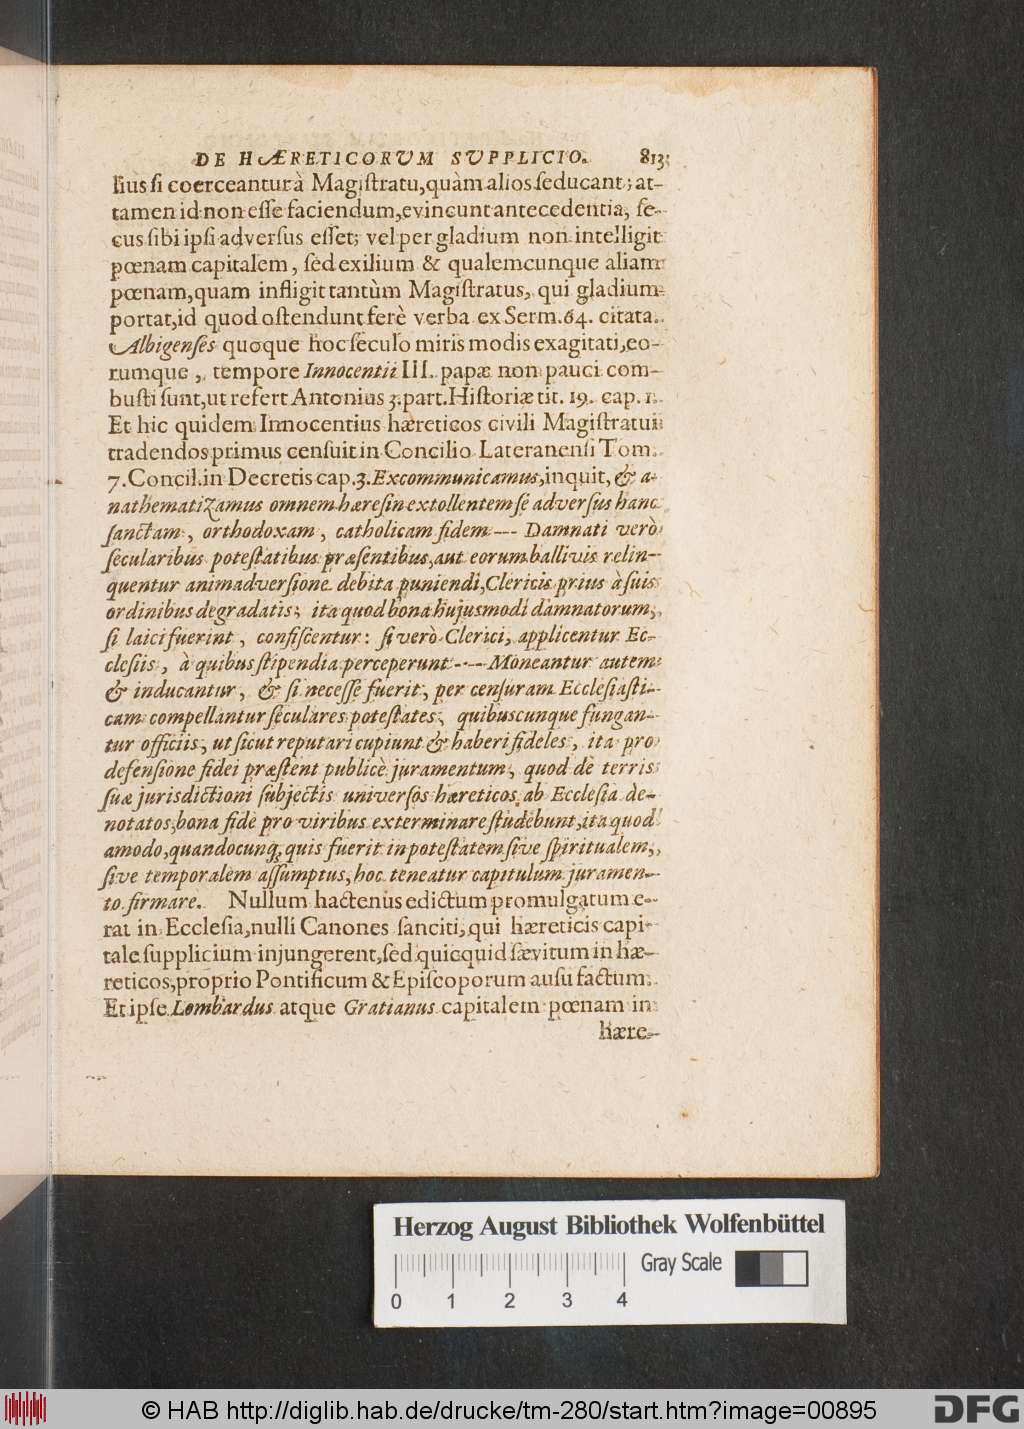 DE HÆRETICORUM SUPPLICIO. 813
lius si coerceantur à Magistratu, quàm alios seducant; at-
tamen id non esse faciendum, evincunt antecedentia, se-
cus sibi ipsi adversus esset; vel per gladium non intelligit
pœnam capitalem, sed exilium & qualemcunque aliam
pœnam, quam infligit tantùm Magistratus, qui gladium
portat, id quod ostendunt ferè verba ex Serm. 64. citata.
Albigenses quoque hoc seculo miris modis exagitati, eo-
rumque, tempore Innocentii III. papæ non pauci com-
busti sunt, ut refert Antonius 3. part. Historiæ tit. 19. cap. 1.
Et hic quidem Innocentius hæreticos civili Magistratui
tradendos primus censuit in Concilio Lateranensi Tom.
7. Concil. in Decretis cap. 3. Excommunicamus, inquit, & a-
nathematizamus omnem hæresin extollentem se adversus hanc
sanctam, orthodoxam, catholicam fidem --- Damnati verò
secularibus potestatibus præsentibus, aut eorum ballivis relin-
quentur animadversione debita puniendi, Clericis prius à suis
ordinibus degradatis; ita quod bona hujusmodi damnatorum,
si laici fuerint, confiscentur: si verò Clerici, applicentur Ec-
clesiis, à quibus stipendia perceperunt --- Moneantur autem
& inducantur, & si necesse fuerit, per censuram Ecclesiasti-
cam compellantur seculares potestates, quibuscunque fungan-
tur officiis, ut sicut reputari cupiunt & haberi fideles, ita pro
defensione fidei præstent publicè juramentum, quod de terris
suæ jurisdictioni subjectis universos hæreticos ab Ecclesia de-
notatos, bona fide pro viribus exterminare studebunt, ita quod
amodo, quandocunq; quis fuerit in potestatem sive spiritualem,
sive temporalem assumptus, hoc teneatur capitulum juramen-
to firmare. Nullum hactenus edictum promulgatum e-
rat in Ecclesia, nulli Canones sanciti, qui hæreticis capi-
tale supplicium injungerent, sed quicquid sævitum in hæ-
reticos, proprio Pontificum & Episcoporum ausu factum.
Et ipse Lombardus atque Gratianus capitalem pœnam in
hære-
Herzog August Bibliothek Wolfenbüttel
Gray Scale
0 1 2 3 4
© HAB http://diglib.hab.de/drucke/tm-280/start.htm?image=00895
DFG